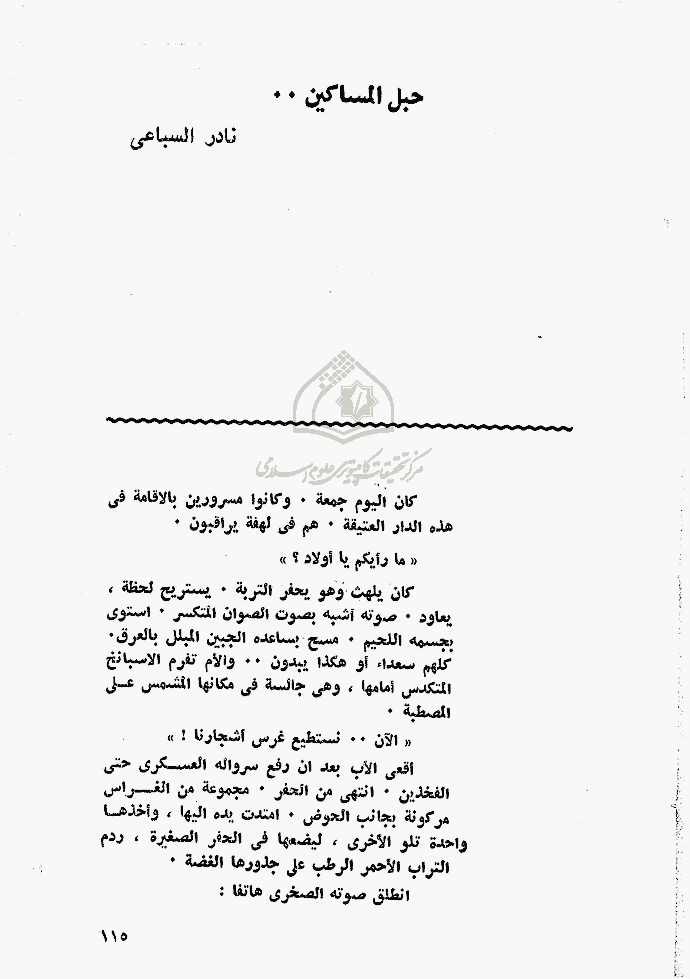 حبل المساكين ٠٠
نادر السباعى
مركز تحقيقات كامپيوترى علوم اسلامى
كان اليوم جمعة ٠ وكانوا مسرورين بالاقامة فى
هذه الدار العتيقة ٠ هم فى لهفة يراقبون ٠
« ما رأيكم يا أولاد ؟ »
كان يلهث وهو يحفر التربة ٠ يستريح لحظة ،
يعاود ٠ صوته أشبه بصوت الصوان المتكسر ٠ استوى
بجسمه اللحيم ٠ مسح بساعده الجبين المبلل بالعرق٠
كلهم سعداء أو هكذا يبدون ٠٠ والأم تفرم الاسبانخ
المتكدس أمامها ، وهى جالسة فى مكانها المشمس عـلى
المصطبة ٠
« الآن ٠٠ نستطيع غرس أشجارنا ! »
أقعى الأب بعد ان رفع سرواله العسـكرى حتى
الفخذين ٠ انتهى من الحفر ٠ مجموعة من الغـــراس
مركونة بجانب الحوض ٠ امتدت يده اليها ، وأخذهـا
واحدة تلو الأخرى ، ليضعها فى الحفر الصغيرة ، ردم
التراب الأحمر الرطب على جذورها الغضة ٠
انطلق صوته الصخرى هاتفا :
١١٥